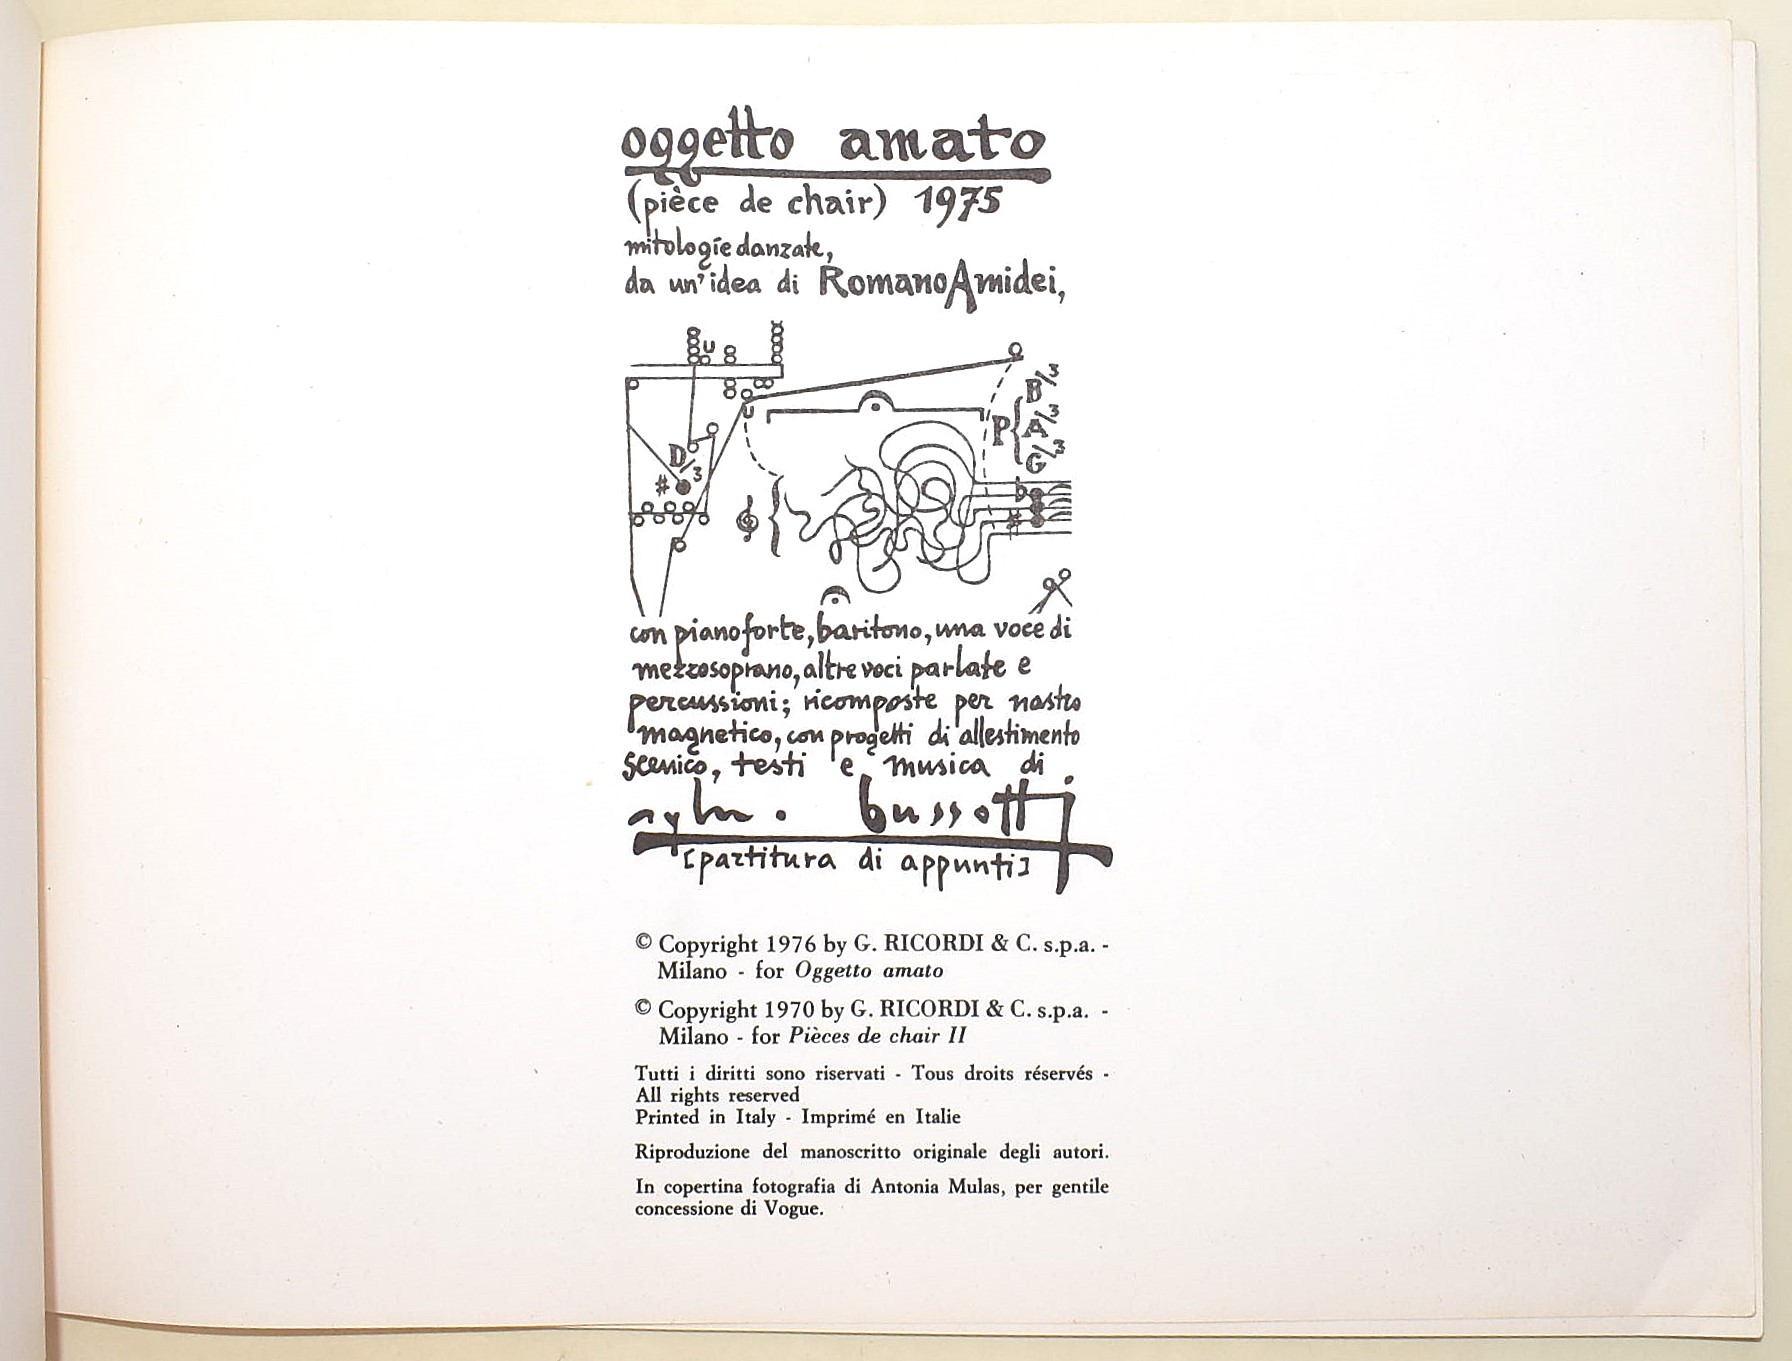 oggetto amato
(pièce de chair) 1975
mitologie danzate,
da un'idea di Romano Amidei,
B/3
P { A/3
G/3
D/3
con pianoforte, baritono, una voce di
mezzosoprano, altre voci parlate e
percussioni; ricomposte per nastro
magnetico, con progetti di allestimento
scenico, testi e musica di
bussotti
[partitura di appunti]
© Copyright 1976 by G. RICORDI & C. s.p.a. -
Milano - for Oggetto amato
© Copyright 1970 by G. RICORDI & C. s.p.a. -
Milano - for Pièces de chair II
Tutti i diritti sono riservati - Tous droits réservés -
All rights reserved
Printed in Italy - Imprimé en Italie
Riproduzione del manoscritto originale degli autori.
In copertina fotografia di Antonia Mulas, per gentile
concessione di Vogue.